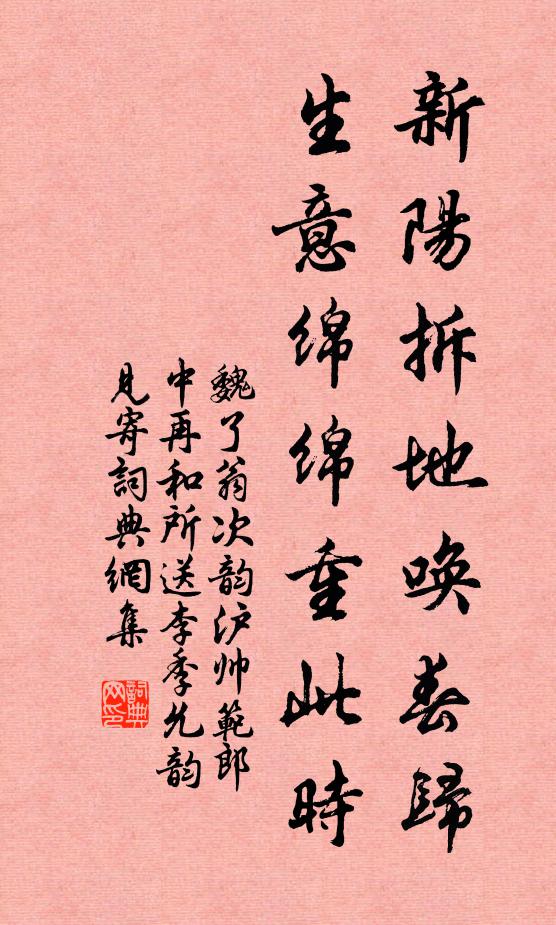 新陽拆地喚春歸
生意綿綿重此時
魏了翁次韵沪帅範郎
中再和所送李季允韵
見寄詞典網集
詞典网印